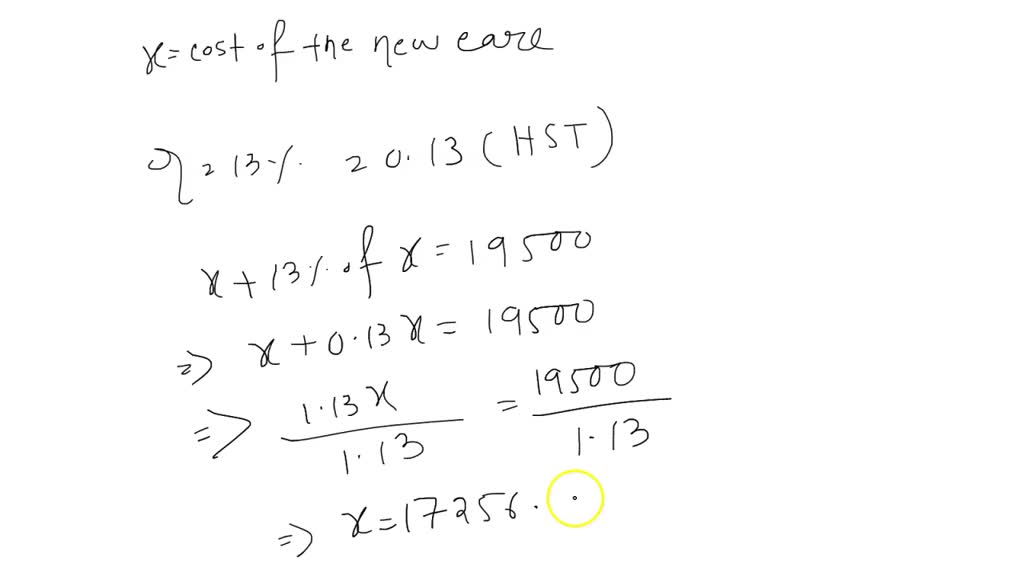 x = cost of the new care
r = 13% = 0.13 (HST)
x + 13% of x = 19500
⇒ x + 0.13x = 19500
⇒ 1.13x / 1.13 = 19500 / 1.13
⇒ x = 17256.